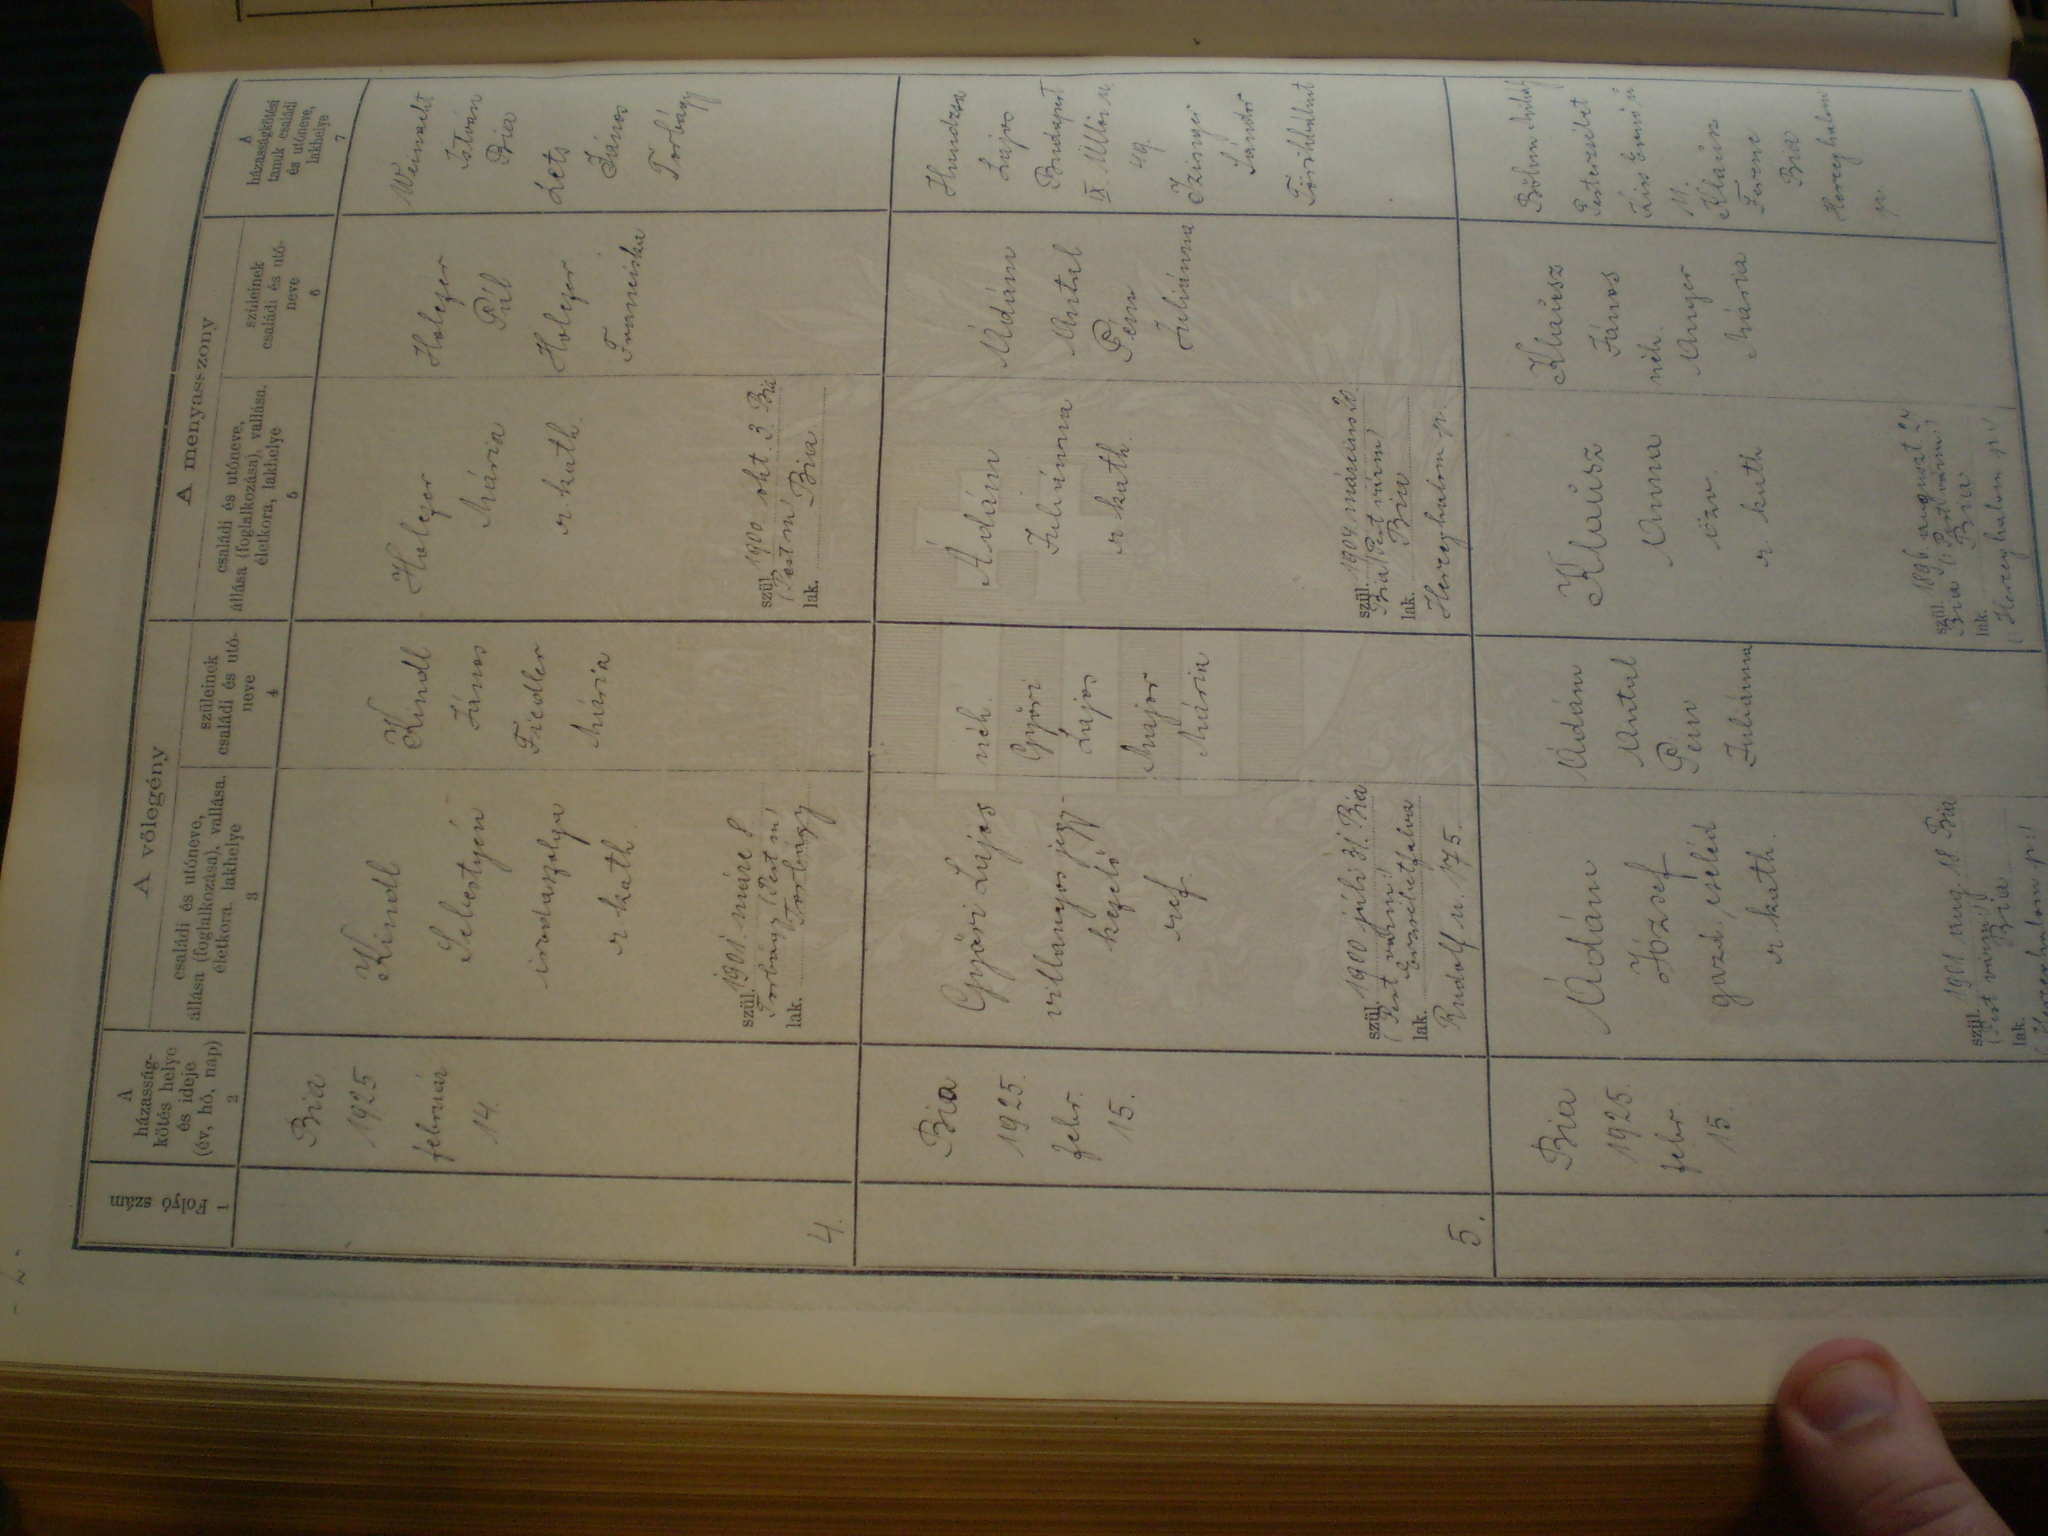 A vőlegény
A menyasszony
Folyó szám
1
A
házasság-
kötés helye
és ideje
(év, hó, nap)
2
családi és utóneve,
állása (foglalkozása), vallása,
életkora, lakhelye
3
szüleinek
családi és utó-
neve
4
családi és utóneve,
állása (foglalkozása), vallása,
életkora, lakhelye
5
szüleinek
családi és utó-
neve
6
A
házasságkötési
tanuk családi
és utóneve,
lakhelye
7
4.
Bia
1925
február
14.
Kindl
Sebestyén
irodaszolga
r. kath.
szül. 1901. márc 8
Torbágy (Pest m)
lak. Torbágy
Kindl
János
Fiedler
Mária
Holczer
Mária
r. kath.
szül. 1900 okt. 3. Bia
(Pest m)
lak. Bia
Holczer
Pál
Holczer
Franciska
István
Bia
János
Torbágy
5.
Bia
1925.
febr.
15.
Győri Lajos
villanyos jegy-
kezelő
ref.
szül. 1900 júli 31. Bia
(Pest várm)
lak. Erzsébetfalva
Rudolf u. 175.
néh.
Győri
Lajos
Major
Mária
Ádám
Juliánna
r. kath.
szül. 1904 március 20
Bia (Pest várm)
lak. Bia
Herceghalom p.
Ádám
Antal
Penn
Juliánna
Hundzsa
Lajos
Budapest
IX. Üllői u
49.
Szinyei
Sándor
Törökbálint
Bia
1925.
febr.
15.
Ádám
József
gazd. cseléd
r. kath.
szül. 1901. aug. 18 Bia
(Pest várm)
lak. Bia
(Herceghalom p:)
Ádám
Antal
Penn
Juliánna
Klausz
Anna
özv.
r. kath
szül. 1896. auguszt 27
Bia (: Pest várm:)
lak. Bia
(Herceghalom p:)
Klausz
János
néh.
Anger
Mária
Böhm Mihály
Pesterzsébet
Kiss Ernő ú
11.
Klausz
Ferenc
Bia
Herceghalom
p.